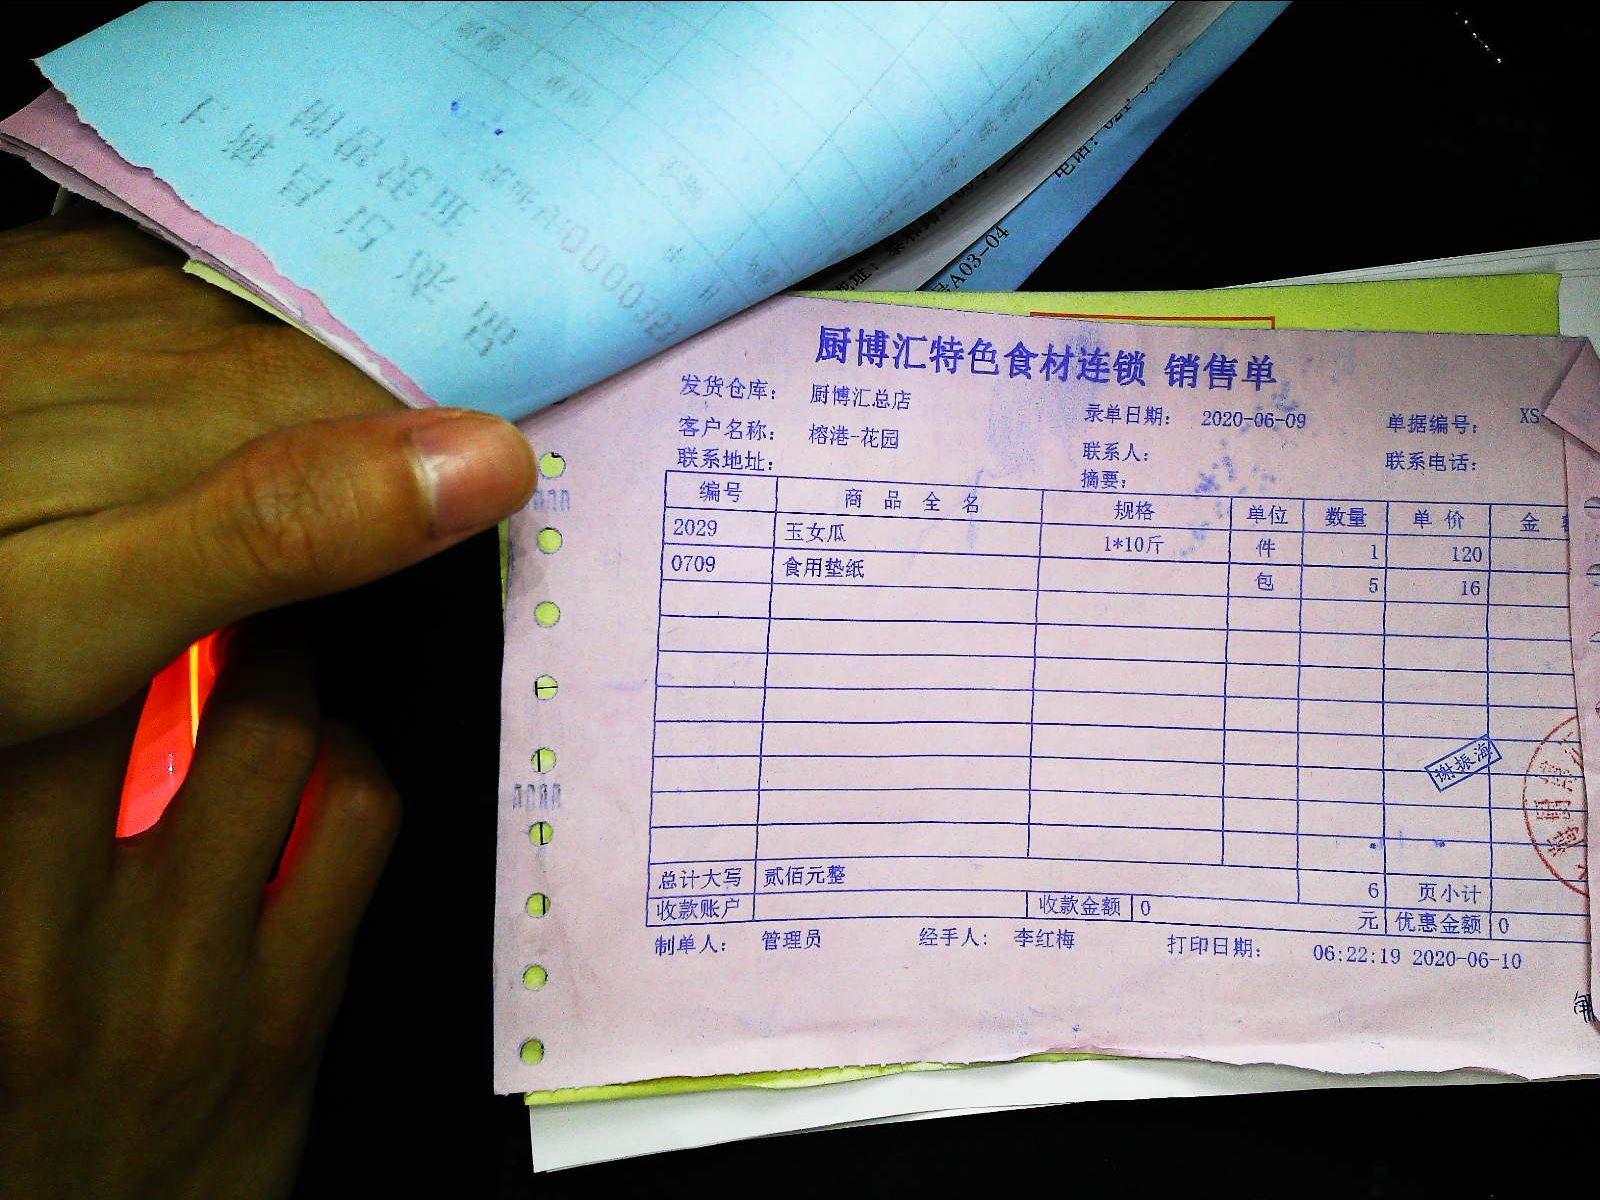 电话：
号A03-04
厨博汇特色食材连锁 销售单
发货仓库： 厨博汇总店 录单日期： 2020-06-09 单据编号： XS
客户名称： 榕港-花园 联系人： 联系电话：
联系地址： 摘要：
编号 商 品 全 名 规格 单位 数量 单 价 金
2029 玉女瓜 1*10斤 件 1 120
0709 食用垫纸 包 5 16
谢振海
总计大写 贰佰元整 6 页小计
收款账户 收款金额 0 元 优惠金额 0
制单人： 管理员 经手人： 李红梅 打印日期： 06:22:19 2020-06-10